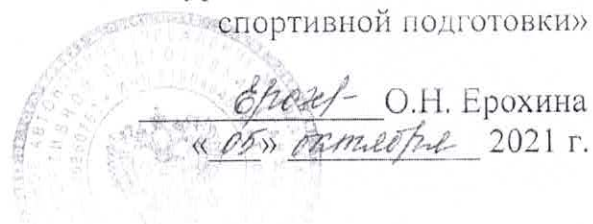 спортивной подготовки»
Ерох- О.Н. Ерохина
«05» октября 2021 г.